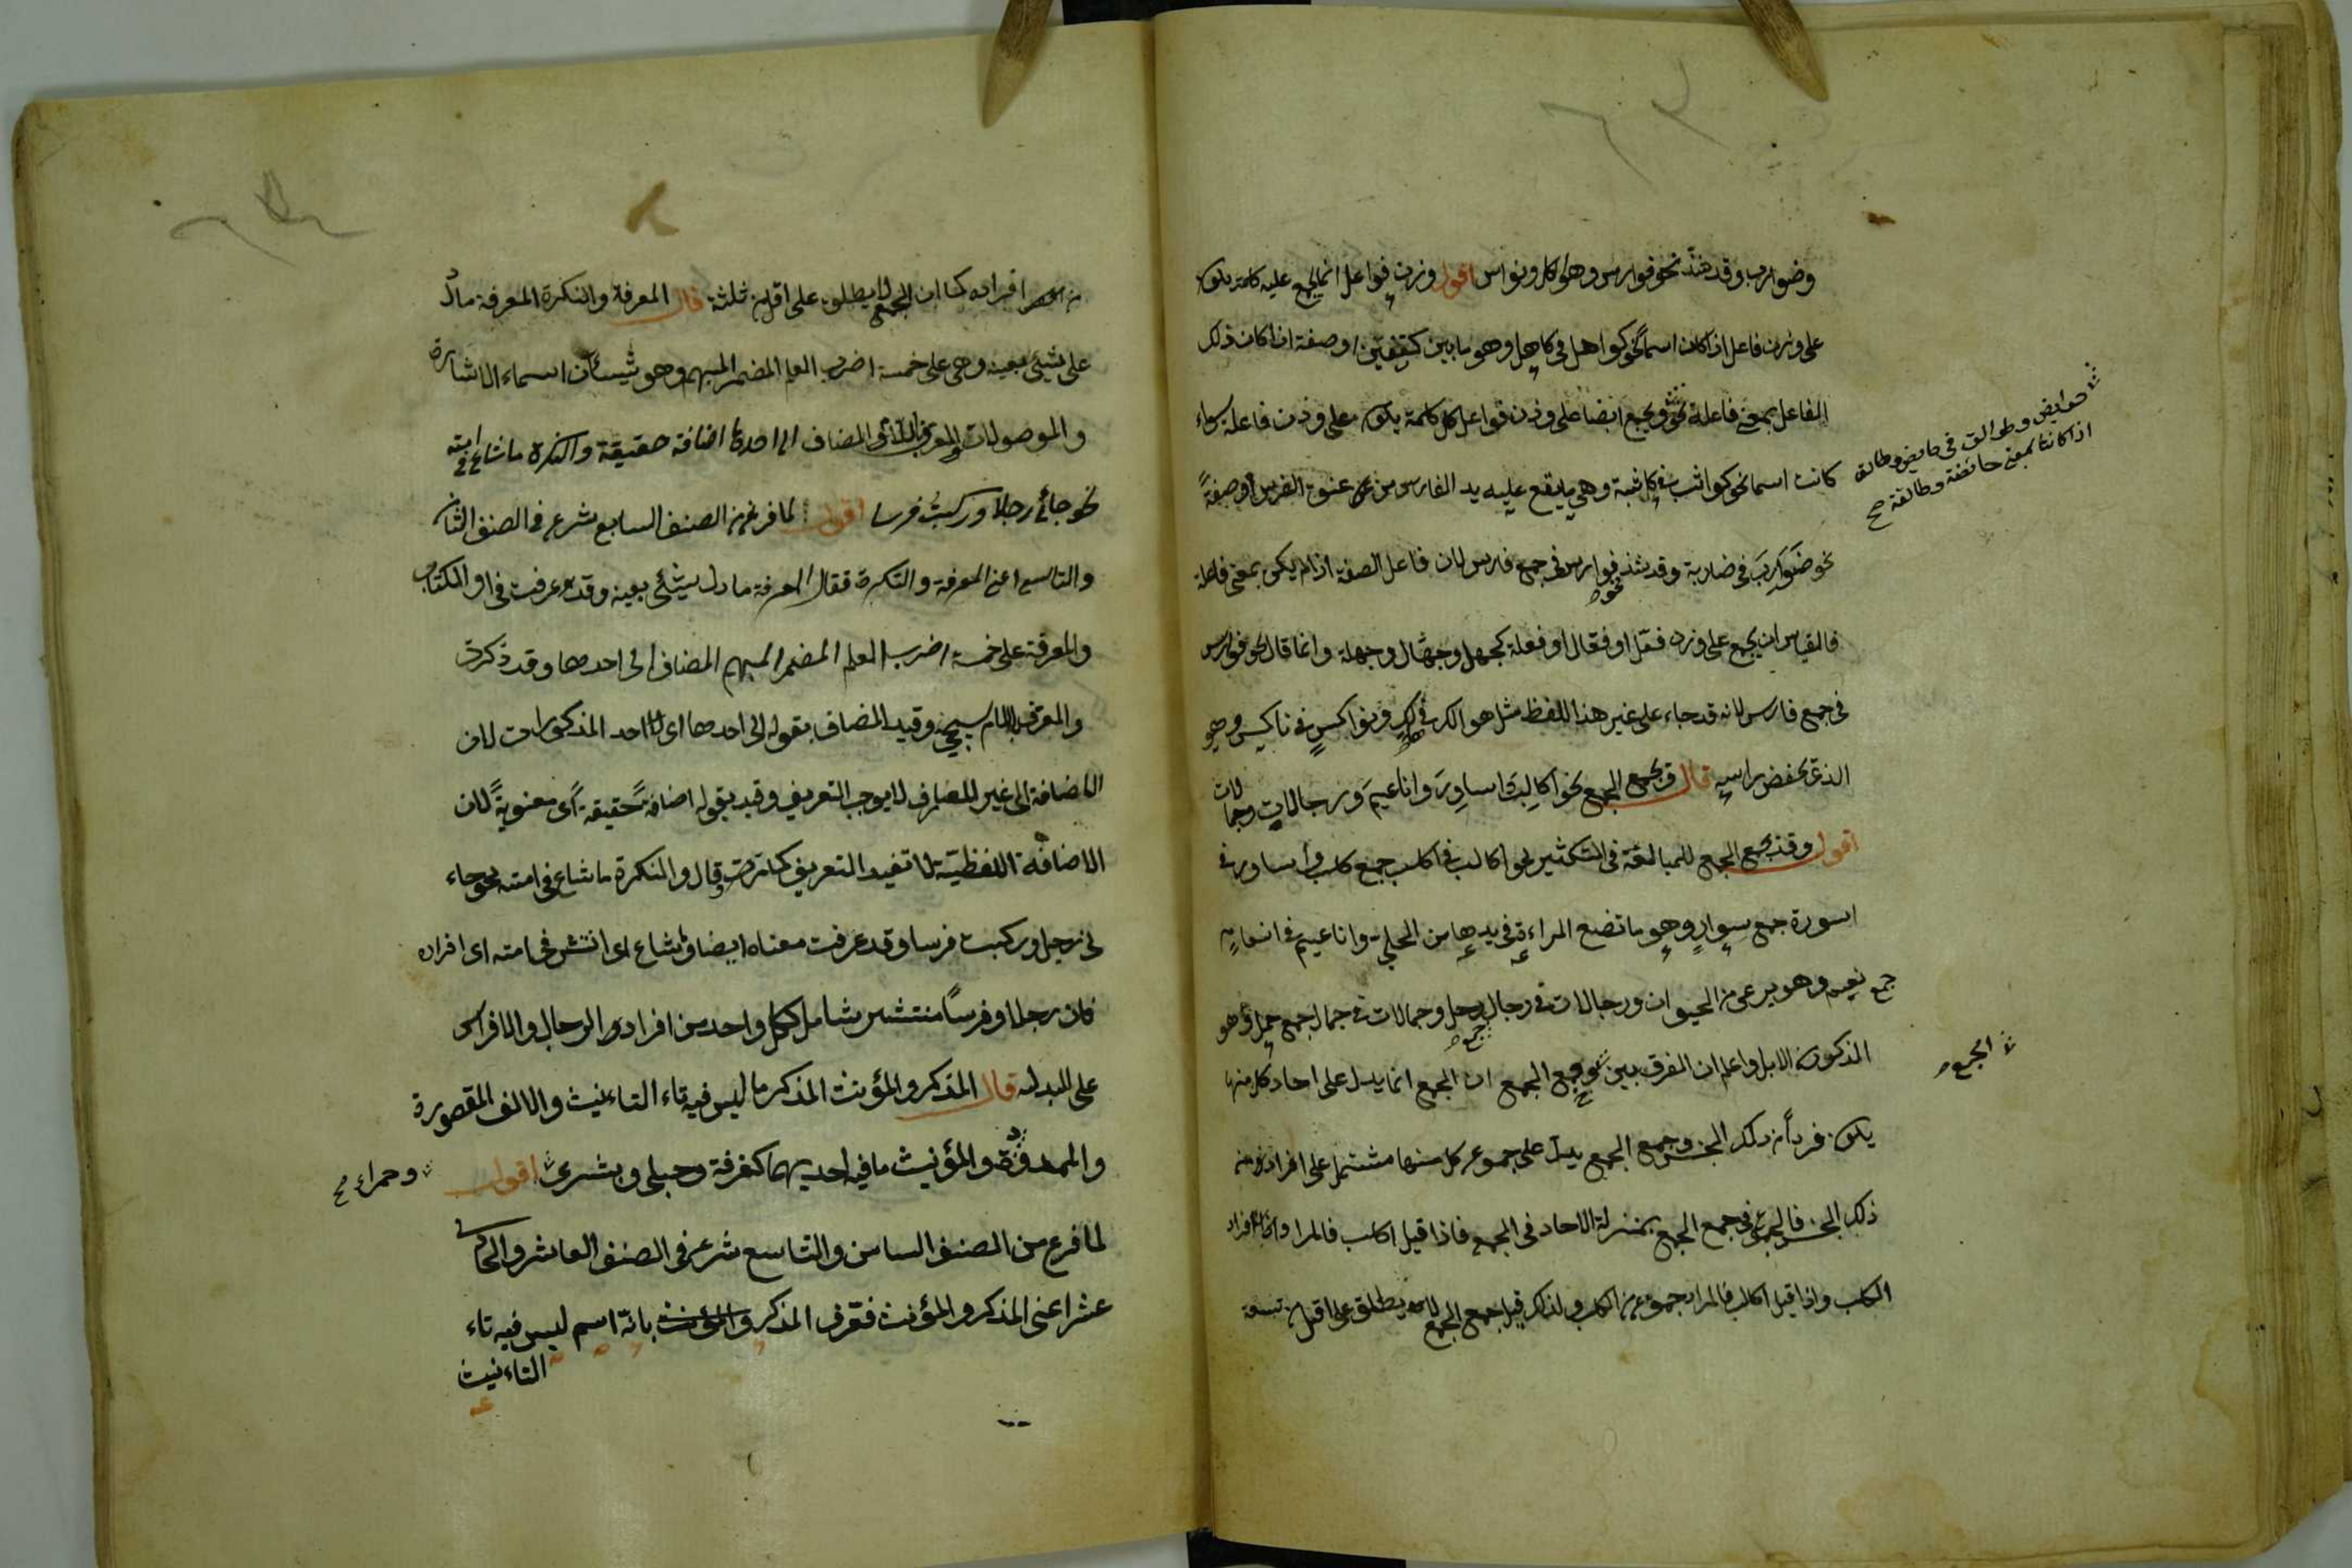 وضوارب وقد شذ نحو فوارس وهوالك ونواكس اقول وزن فواعل انما يجمع عليه كلمة يكون
على وزن فاعل اذا كان اسما نحو كواهل في كاهل وهو ما بين كتفين او صفة اذا كان ذلك
الفاعل بمعنى فاعلة نحو ويجمع ايضا على وزن فواعل كل كلمة يكون على وزن فاعلة سواء
حوايض وطوالق في حايض وطالق
اذا كانتا بمعنى حائضة وطالقة صح
كانت اسما نحو كواثب في كاثبة وهي ما يقع عليه يد الفارس من عنق الفرس او صفة
نحو ضوارب في ضاربة وقد شذ نحو فوارس في جمع فارس لان فاعل الصفة اذا لم يكن بمعنى فاعلة
فالقياس ان يجمع على وزن فعّل او فعّال او فعلة كجهل وجهّال وجهلة وانما قال نحو فوارس
في جمع فارس لانه قد جاء على غير هذا اللفظ مثل هوالك في هالك ونواكس في ناكس وهو
الذى يخفض راسه قال ويجمع الجمع نحو اكالب واساور واناعيم ورجالات وجمالات
اقول وقد يجمع الجمع للمبالغة في التكثير نحو اكالب في اكلب جمع كلب واساور في
اسورة جمع سوار وهو ما تضع المراءة في يدها من الحلي واناعيم في انعام
جمع نعيم وهو يرعى من الحيوان ورجالات في رجال جمع رجل وجمالات في جمال جمع جمل وهو
المذكور من الابل واعلم ان الفرق بين وجمع الجمع ان الجمع انما يدل على احاد كل منها
الجمع
يكون فردا من ذلك الجنس وجمع الجمع يدل على جموع كل منها مشتمل على افراد من
ذلك الجنس فالجموع في جمع الجمع بمنزلة الاحاد في الجمع فاذا قيل اكلب فالمراد افراد
الكلب واذا قيل اكالب فالمراد جموع من الكلب ولذلك قيل جمع الجمع لا يطلق على اقل من تسعة
من افراده كما ان الجمع لا يطلق على اقل من ثلثة قال المعرفة والنكرة المعرفة ما دل
على شيئ بعينه وهي على خمسة اضرب العلم المضمر المبهم وهو شيئان اسماء الاشارة
والموصولات والمعرف باللام المضاف الى احدها اضافة حقيقة والنكرة ما شاع في امته
نحو جائنى رجل وركبت فرسا اقول لما فرغ من الصنف السابع شرع في الصنف الثامن
والتاسع اعنى المعرفة والنكرة فقال المعرفة ما دل شيئى بعينه وقد عرفت في اول الكتاب
والمعرفة على خمسة اضرب العلم المضمر المبهم المضاف الى احدهما وقد ذكرت
والمعرف باللام سيجئ وقيد المضاف بقوله الى احدهما اى الى احد المذكورات لان
الاضافة الى غير المعارف لا يوجب التعريف وقيد بقوله اضافة حقيقة اى معنوية لان
الاضافة اللفظية لا تفيد التعريف كما مرت قال والنكرة ما شاع في امته نحو جاء
نى رجل وركبت فرسا وقد عرفت معناه ايضا وشاع اى انتشر في امته اى افراده
فان رجلا وفرسا منتشر شامل لكل واحد من افراد الرجال والافراس
على البدل قال المذكر والمؤنث المذكر ما ليس فيه تاء التاءنيث والالف المقصورة
والممدودة والمؤنيث ما فيه احديهما كغرفة وحبلى وبشرى اقول
وحمراء صح
لما فرغ من الصنف السامن والتاسع شرع في الصنف العاشر والحادى
عشر اعنى المذكر والمؤنث فعرف المذكر والمؤنث بانه اسم ليس فيه تاء
التاءنيث